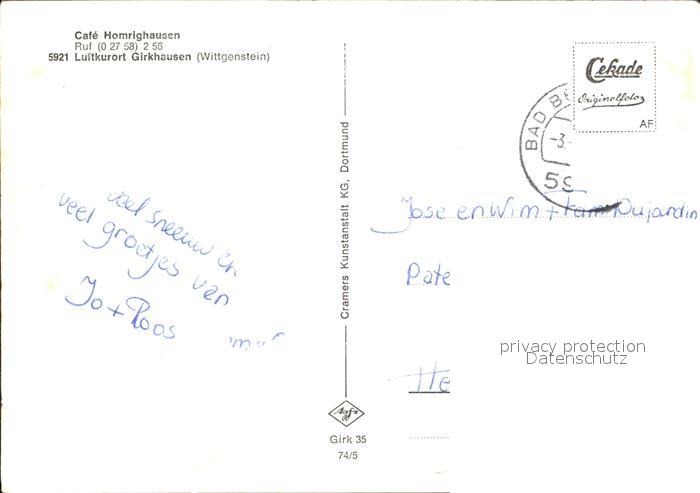 Café Homrighausen
Ruf (0 27 58) 2 56
5921 Luftkurort Girkhausen (Wittgenstein)
veel sneeuw en
veel groetjes van
Jo + Roos
Cramers Kunstanstalt KG, Dortmund
Agfa
Girk 35
74/5
Cekade
Originalfoto
AF
BAD BE
-3.
59
Jose en Wim + fam Dujardin
Pate
He
privacy protection
Datenschutz